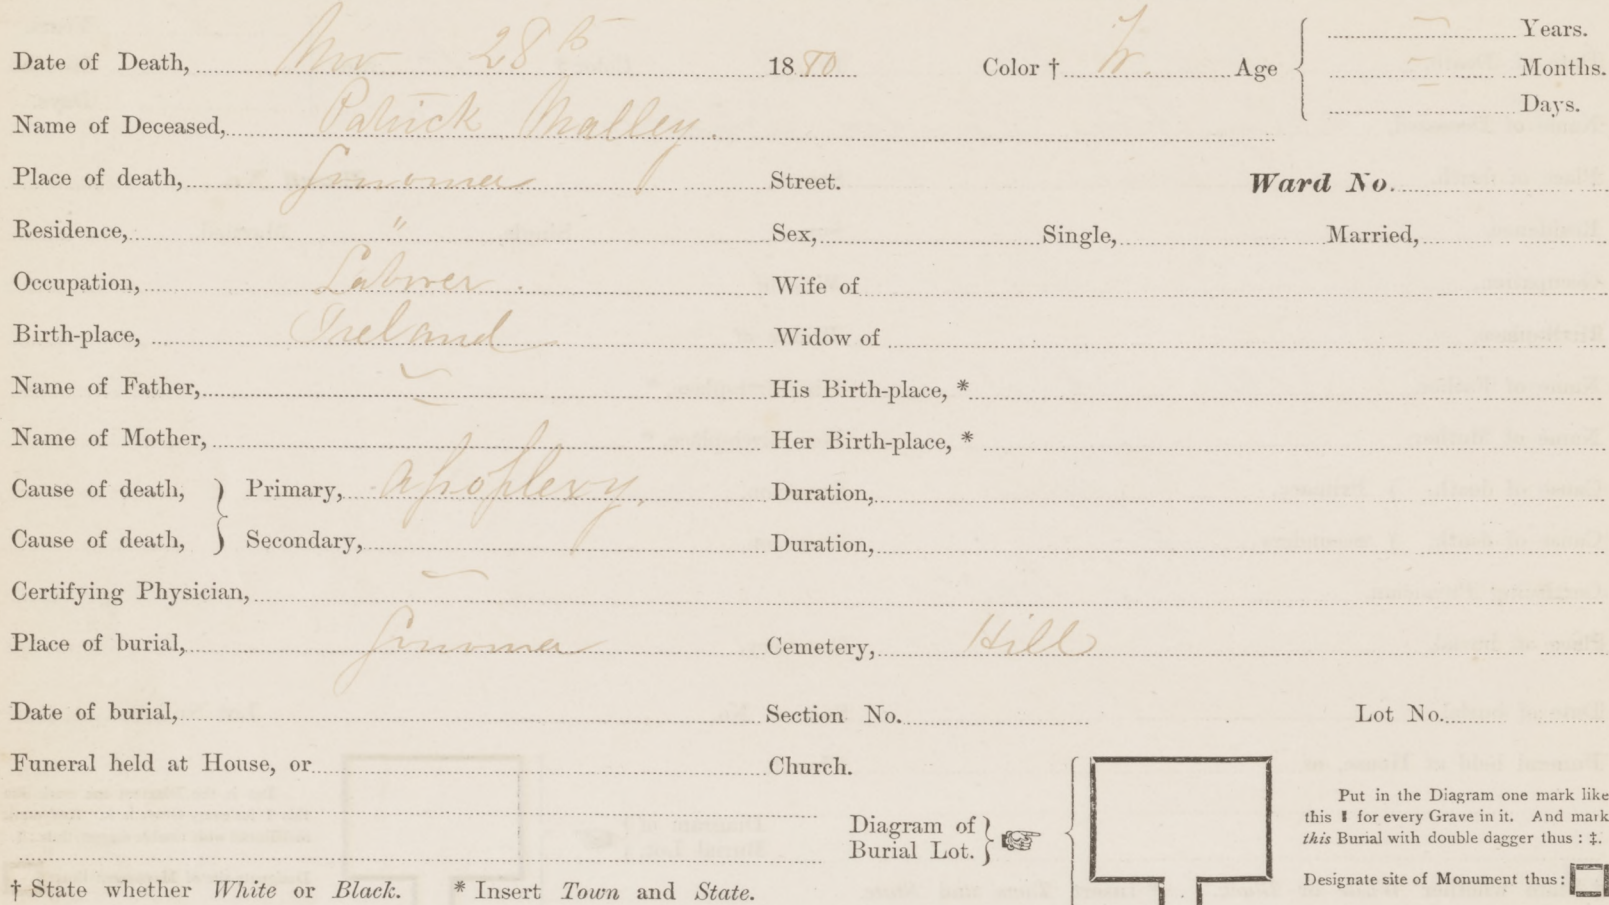 Date of Death, Nov 28th 1880 Color † W. Age Years.
Months.
Days.
Name of Deceased, Patrick Malley.
Place of death, Street. Ward No.
Residence, " Sex, Single, Married,
Occupation, Laborer. Wife of
Birth-place, Ireland Widow of
Name of Father, His Birth-place, *
Name of Mother, Her Birth-place, *
Cause of death, } Primary, apoplexy. Duration,
Cause of death, } Secondary, Duration,
Certifying Physician,
Place of burial, Cemetery, Hill
Date of burial, Section No. Lot No.
Funeral held at House, or Church.
Diagram of
Burial Lot. }
Put in the Diagram one mark like
this ! for every Grave in it. And mark
this Burial with double dagger thus : ‡.
Designate site of Monument thus:
† State whether White or Black. * Insert Town and State.